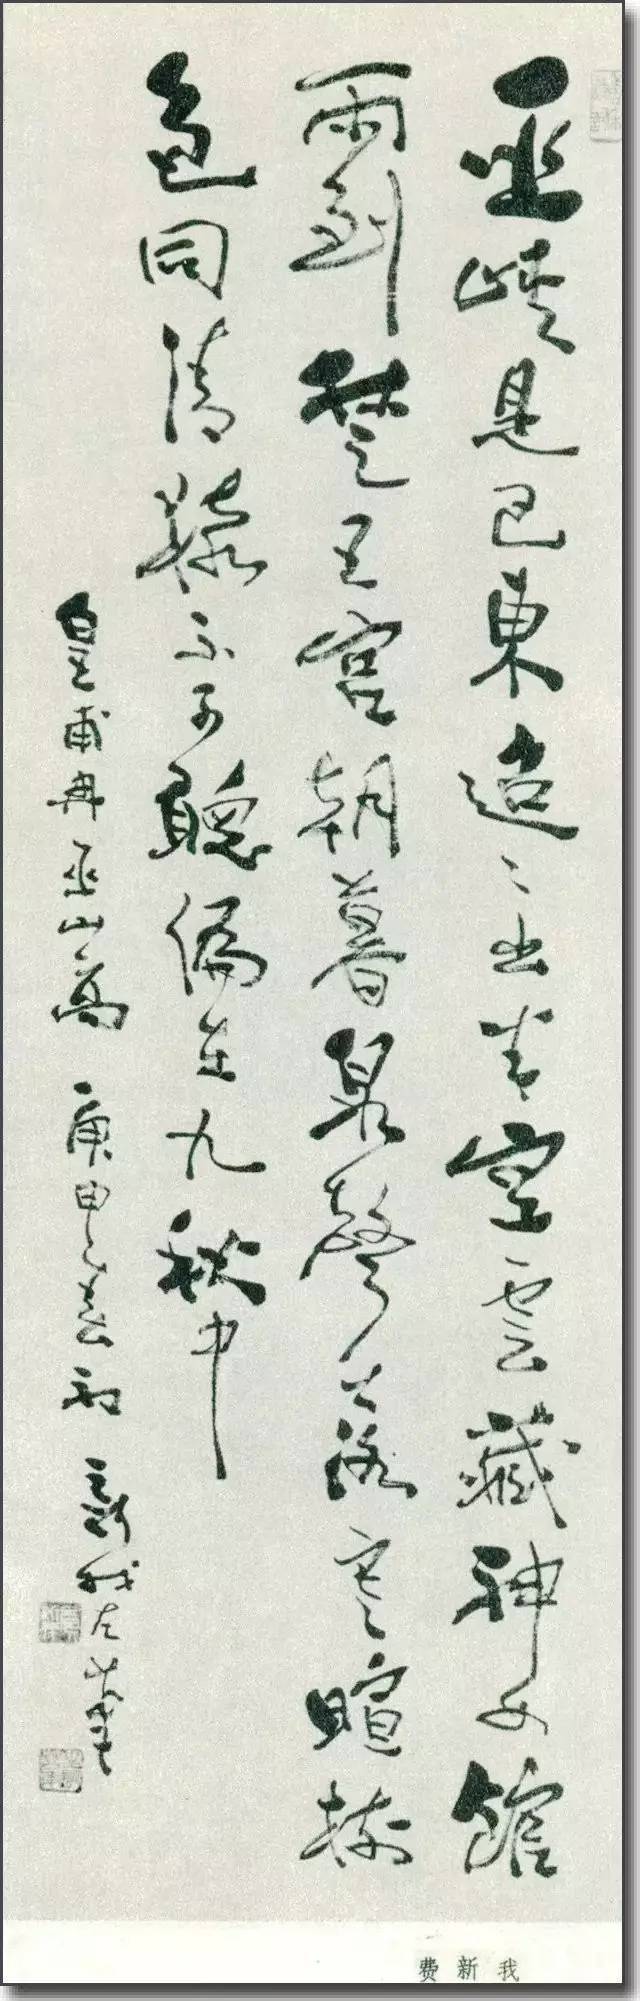 巫峽是巴東迢々出半空雲藏神女館
雨到楚王宮朝暮泉聲落寒暄樹
色同清猿不可聽偏在九秋中
皇甫冉巫山高 庚申春初 新我左筆
费新我